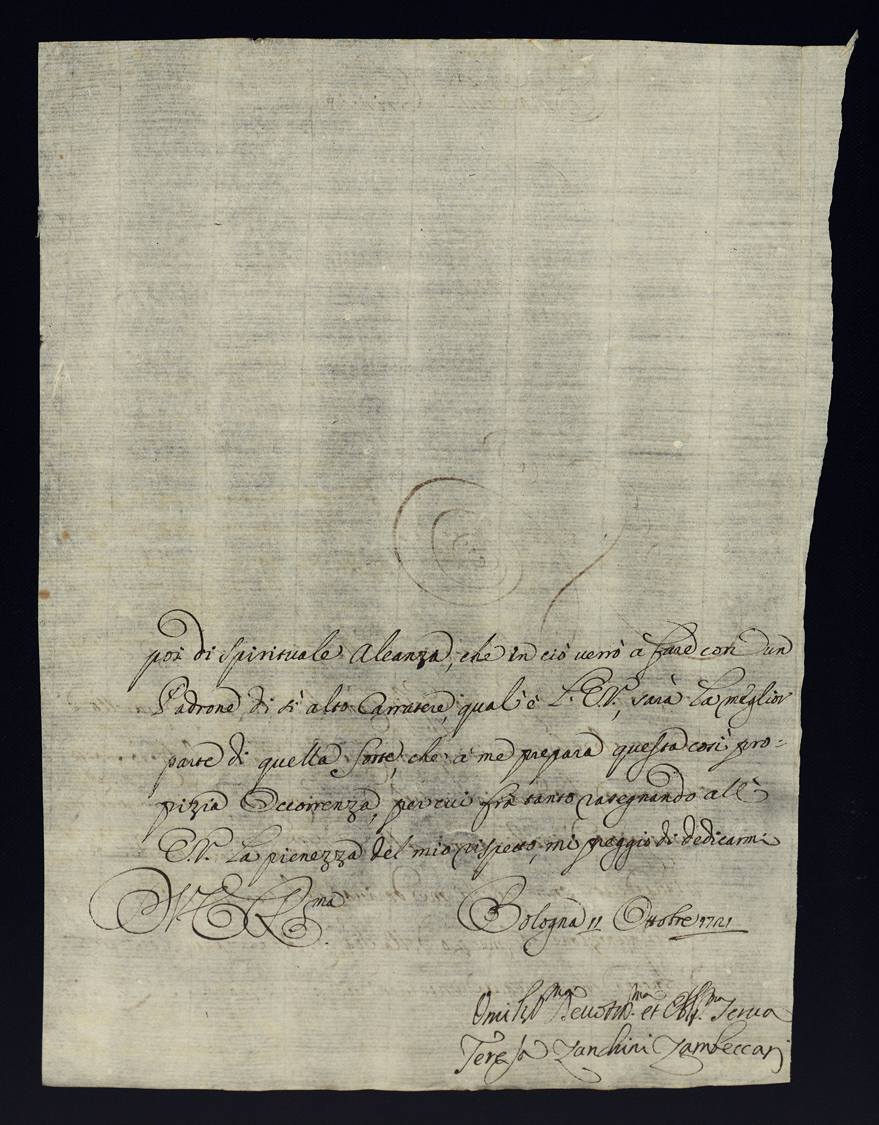 poi di spirituale Aleanza, che in ciò verrò à fare con un
Padrone di sì alto Carratere, qual'è L'E.V., sarà la meglior
parte di quella sorte, che à me prepara questa così pro=
pizia Occorrenza, per cui frà tanto rasegnando all'
E.V. la pienezza del mio rispetto, mi preggio di dedicarmi
Bologna 11 Ottobre 1721
Umil.ma Devotis.ma et Obl.ma Serva
Teresa Zanchini Zambeccari